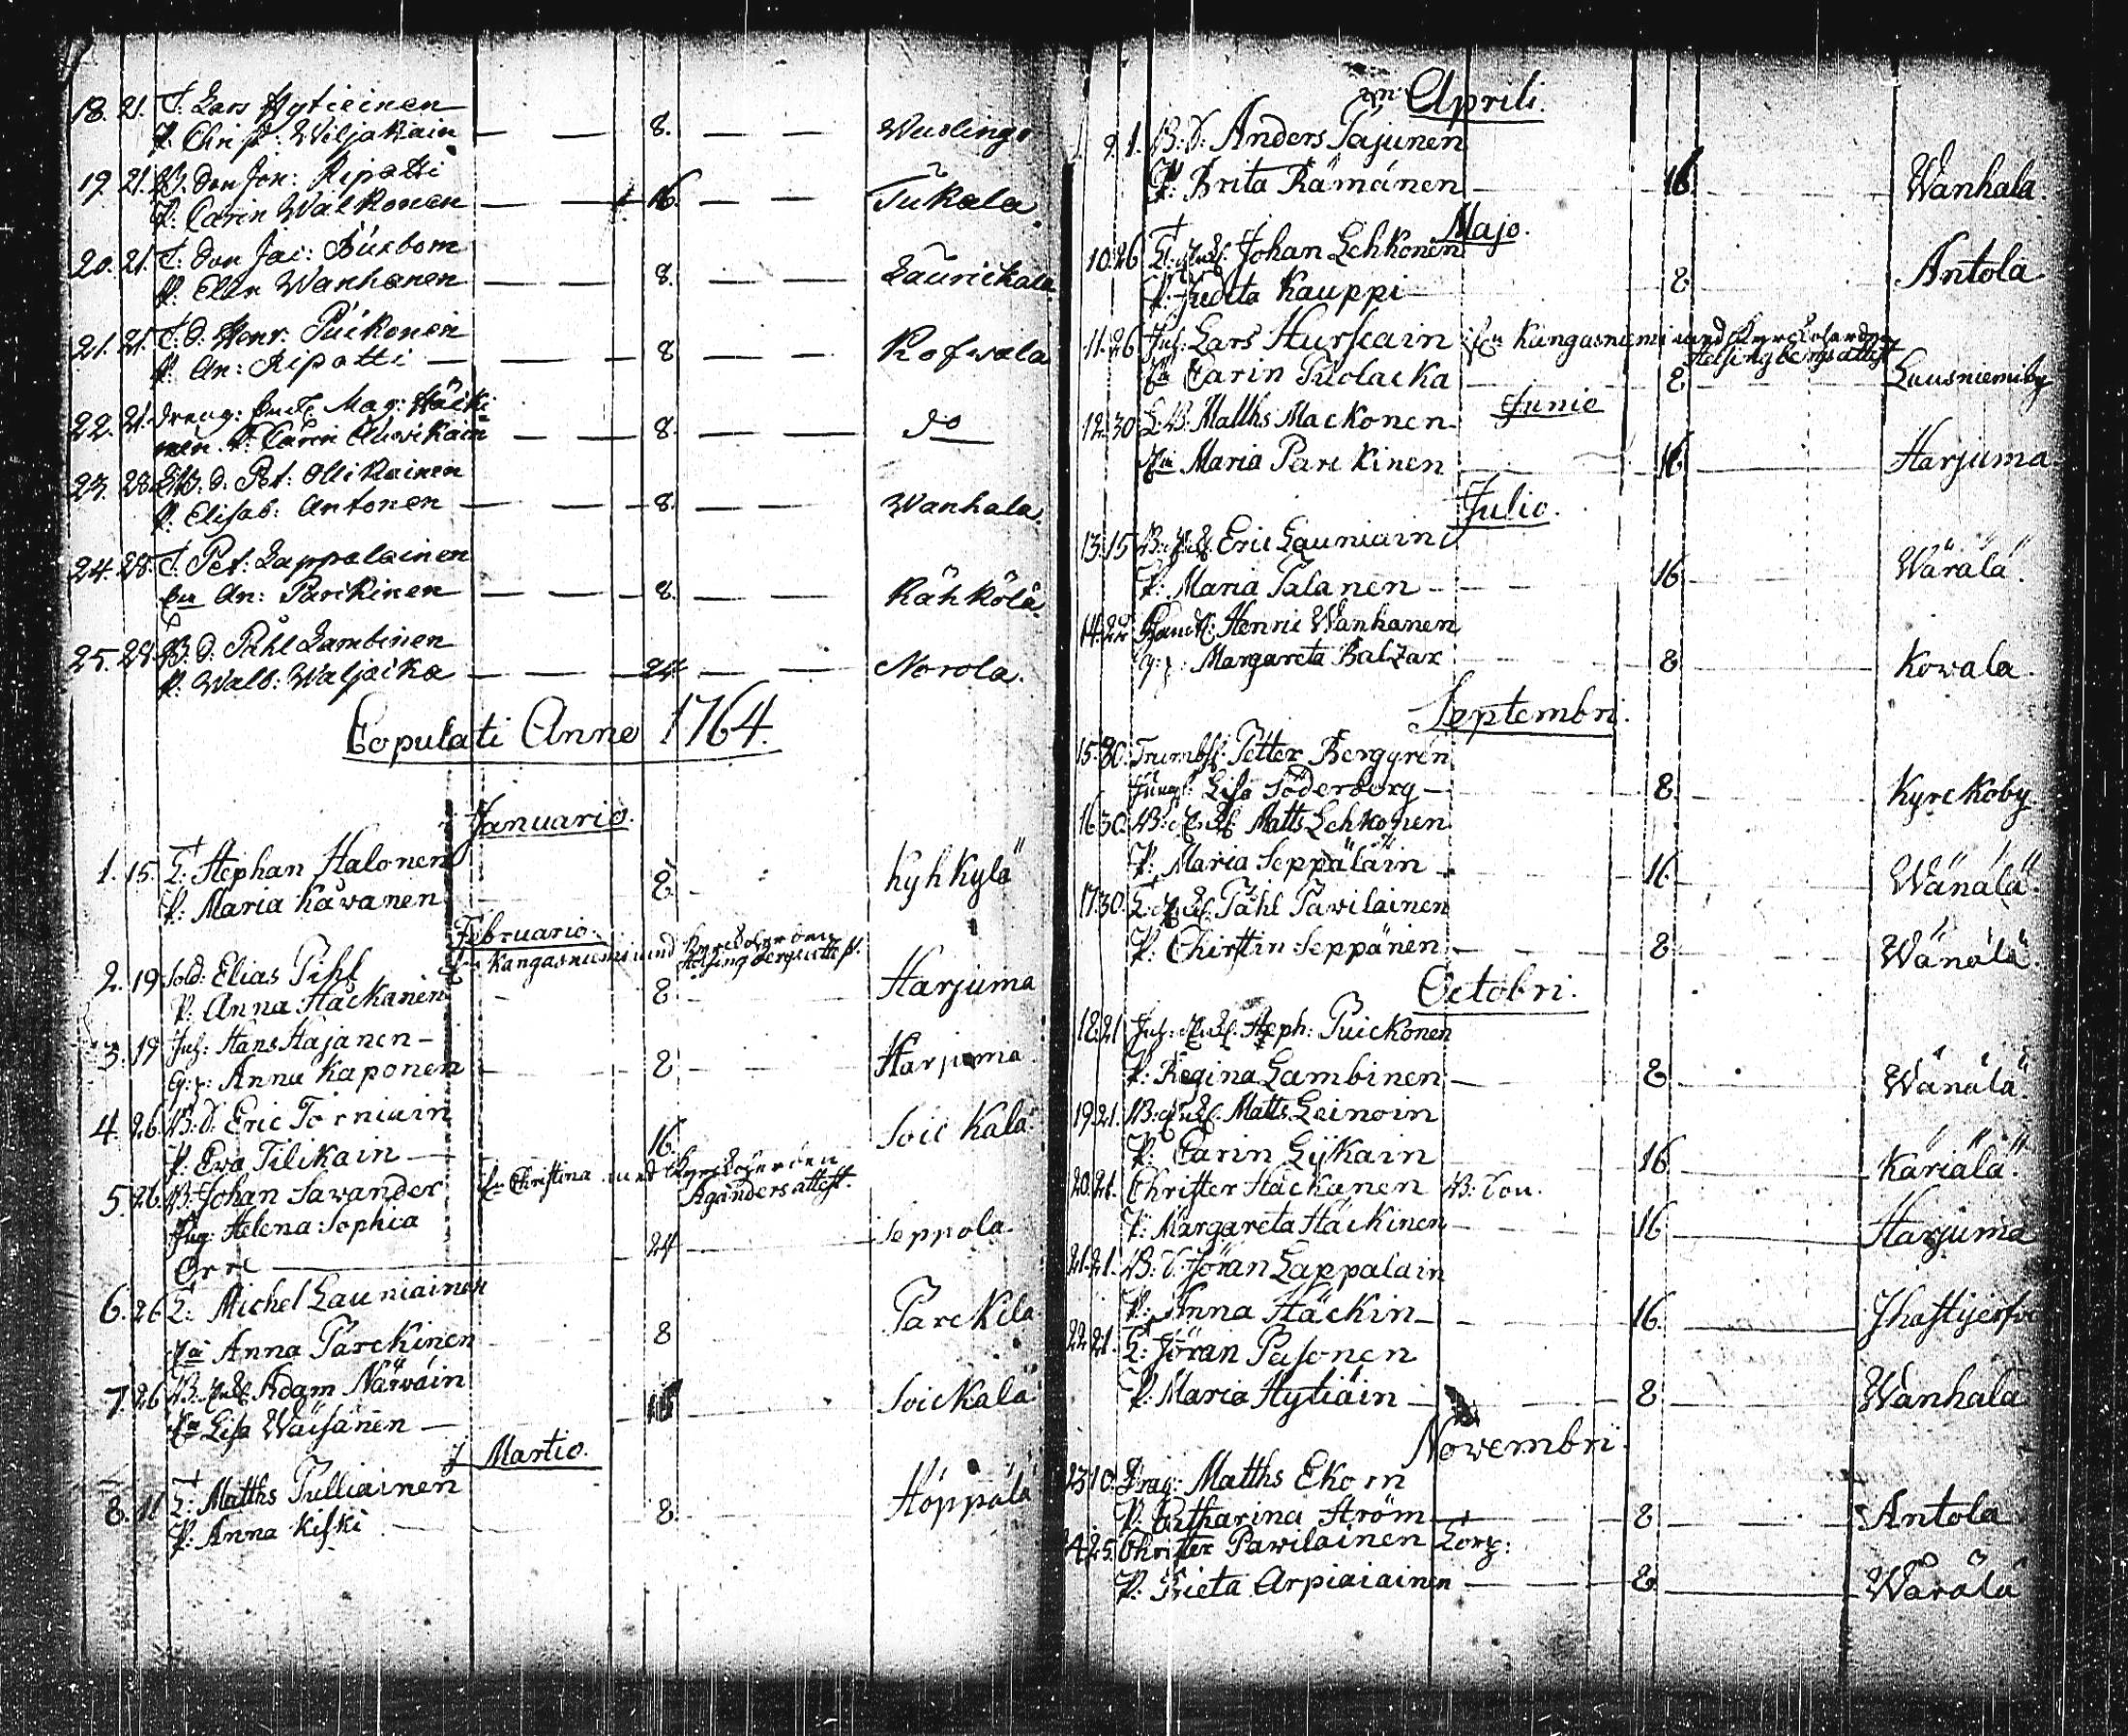 18. 21. T. Lars Hytieinen
P. Christ: Wiljakain — — 8. — — Wuolingo
19. 21. B. Son Jon: Ripatti
P. Carin Walkonen — — 16. — — Tukala.
20. 21. T. Son Jac: Buxbom
P. Elin Wanhanen — — 8. — — Laurickala
21. 21. T. d. Henr. Puickonen
P. An: Ripatti — — — 8 — — Kofwala
22. 21. Dreng: Mag: Häcki
nen. P. Carin — — 8. — — do
23. 28. d. Pet: Ollikainen
P. Elisab: Antonen — — 8. — — Wanhala.
24. 28. T. Pet: Lappalainen
Enk An: Parikinen — — 8. — — Kähkölä
25. 28. B. d. Påhl Lambinen
P. Walb: Waljacka — — 24 — — Norola.
Copulati Anno 1764.
Januario.
1. 15. T: Stephan Halonen
P: Maria Kåvanen 8. Kyhkylä
Februario.
2. 19 Sold: Elias Pihl fr Kangasniemi med Kyrckoherden Helsingbergs attest.
P. Anna Häckänen 8. Harjuma
3. 19 Inh: Hans Hajanen —
Q:p: Anna Kaponen 8 Harjuma
4. 26. B: d. Eric Torniain
P. Eva Tilikain — 16. Soickala
5. 26. B. Johan Savander fr Christina med Kyrckoherden Aganders attest.
Jug: Helena Sophia
Orre 24 Seppola.
6. 26 T: Michel Launiainen
Ea Anna Parckinen 8 Parckila
7. 26 B. Adam Närväin
Ea Lisa Wäisänen — 16 Soickala
Martio.
8. 11 T: Matths Pulliainen
P: Anna Kiski 8. Höppälä
Aprili.
9. 1. B: d: Anders Pajunen
P: Brita Rämänen 16. Wanhala.
Majo.
10. 26 T: Johan Lehkonen
P: Judita Kauppi 8 Antola
11. 26 Inh: Lars Hurscain fr Kangasniemi med Kyrckoherden Helsingbergs attest
Ea Carin Puolacka 8 Luusniemiby
Junio
12. 30 L: B: Matths Mackonen
Ea Maria Parckinen 16 Harjuma
Julio.
13. 15 B: Eric Launiain
P: Maria Talanen — 16 Wärälä.
14. 22 Henric Wanhanen
Q:p: Margareta Balzar 8 Kowala.
Septembri.
15. 30. Trumbsl: Petter Berggren
Jungf: Lisa Söderberg — 8. Kyrckoby
16. 30. B: Matts Lehkonen
P: Maria Seppäläin 16 Wänälä.
17. 30. T: Påhl Pavilainen
P: Chirstin Seppänen — 8 Wänälä.
Octobri.
18. 21 Inh: Steph: Puickonen
P: Regina Lambinen — 8 Wänälä.
19. 21. B: Matts Leinoin
P: Carin Lykain 16 Kariälä.
20. 21. Christer Häckänen B: Son.
P: Margareta Häckinen 16 Harjuma
21. 21. B: d. Jöran Lappalain
P: Anna Häckin — 16. Ihastjerfvi
22. 21. T: Jöran Pasonen
P: Maria Hytiäin 8 Wanhala
Novembri.
23. 10. Drag: Matths Ekorn
P. Catharina Ström — 8 Antola
24. 25. Christer Pavilainen
P: Brieta Arpiaiainen — 8. Wärälä